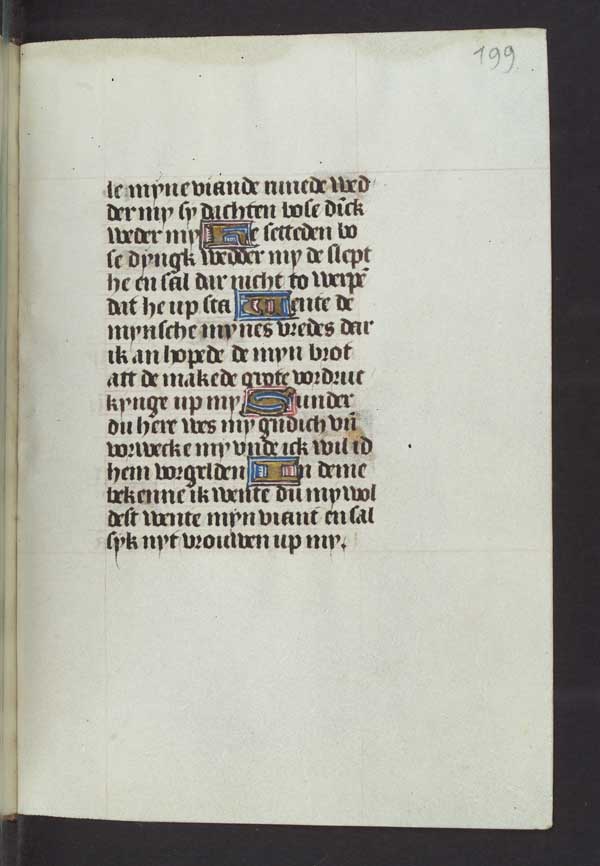 199
le myne viande nmede wed
der my sy dichten bose dīck
weder my Se setteden bo
se dyngk wedder my de slept
he en sal dar nicht to werpē
dat he up sta Wente de
mynsche mynes vredes dar
ik an hopede de myn brot
att de makede grote vordruc
kynge up my Sunder
du here wes my gndich vn̄
vorwecke my vnde ick wil id
hem vorgelden In deme
bekenne ik wente du my wol
dest wente myn viant en sal
syk nyt vrouwen up my.